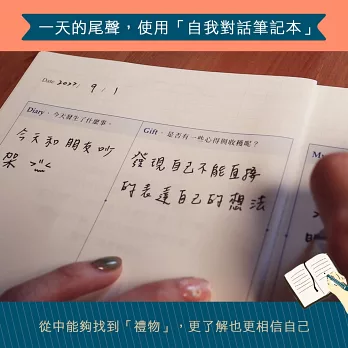 一天的尾聲，使用「自我對話筆記本」
Date 2022. 9 / 1
Diary · 今天發生了什麼事。
今天和朋友吵
架
Gift · 是否有一些心得與收穫呢？
發現自己不能直接
的表達自己的想法
My
從中能夠找到「禮物」，更了解也更相信自己